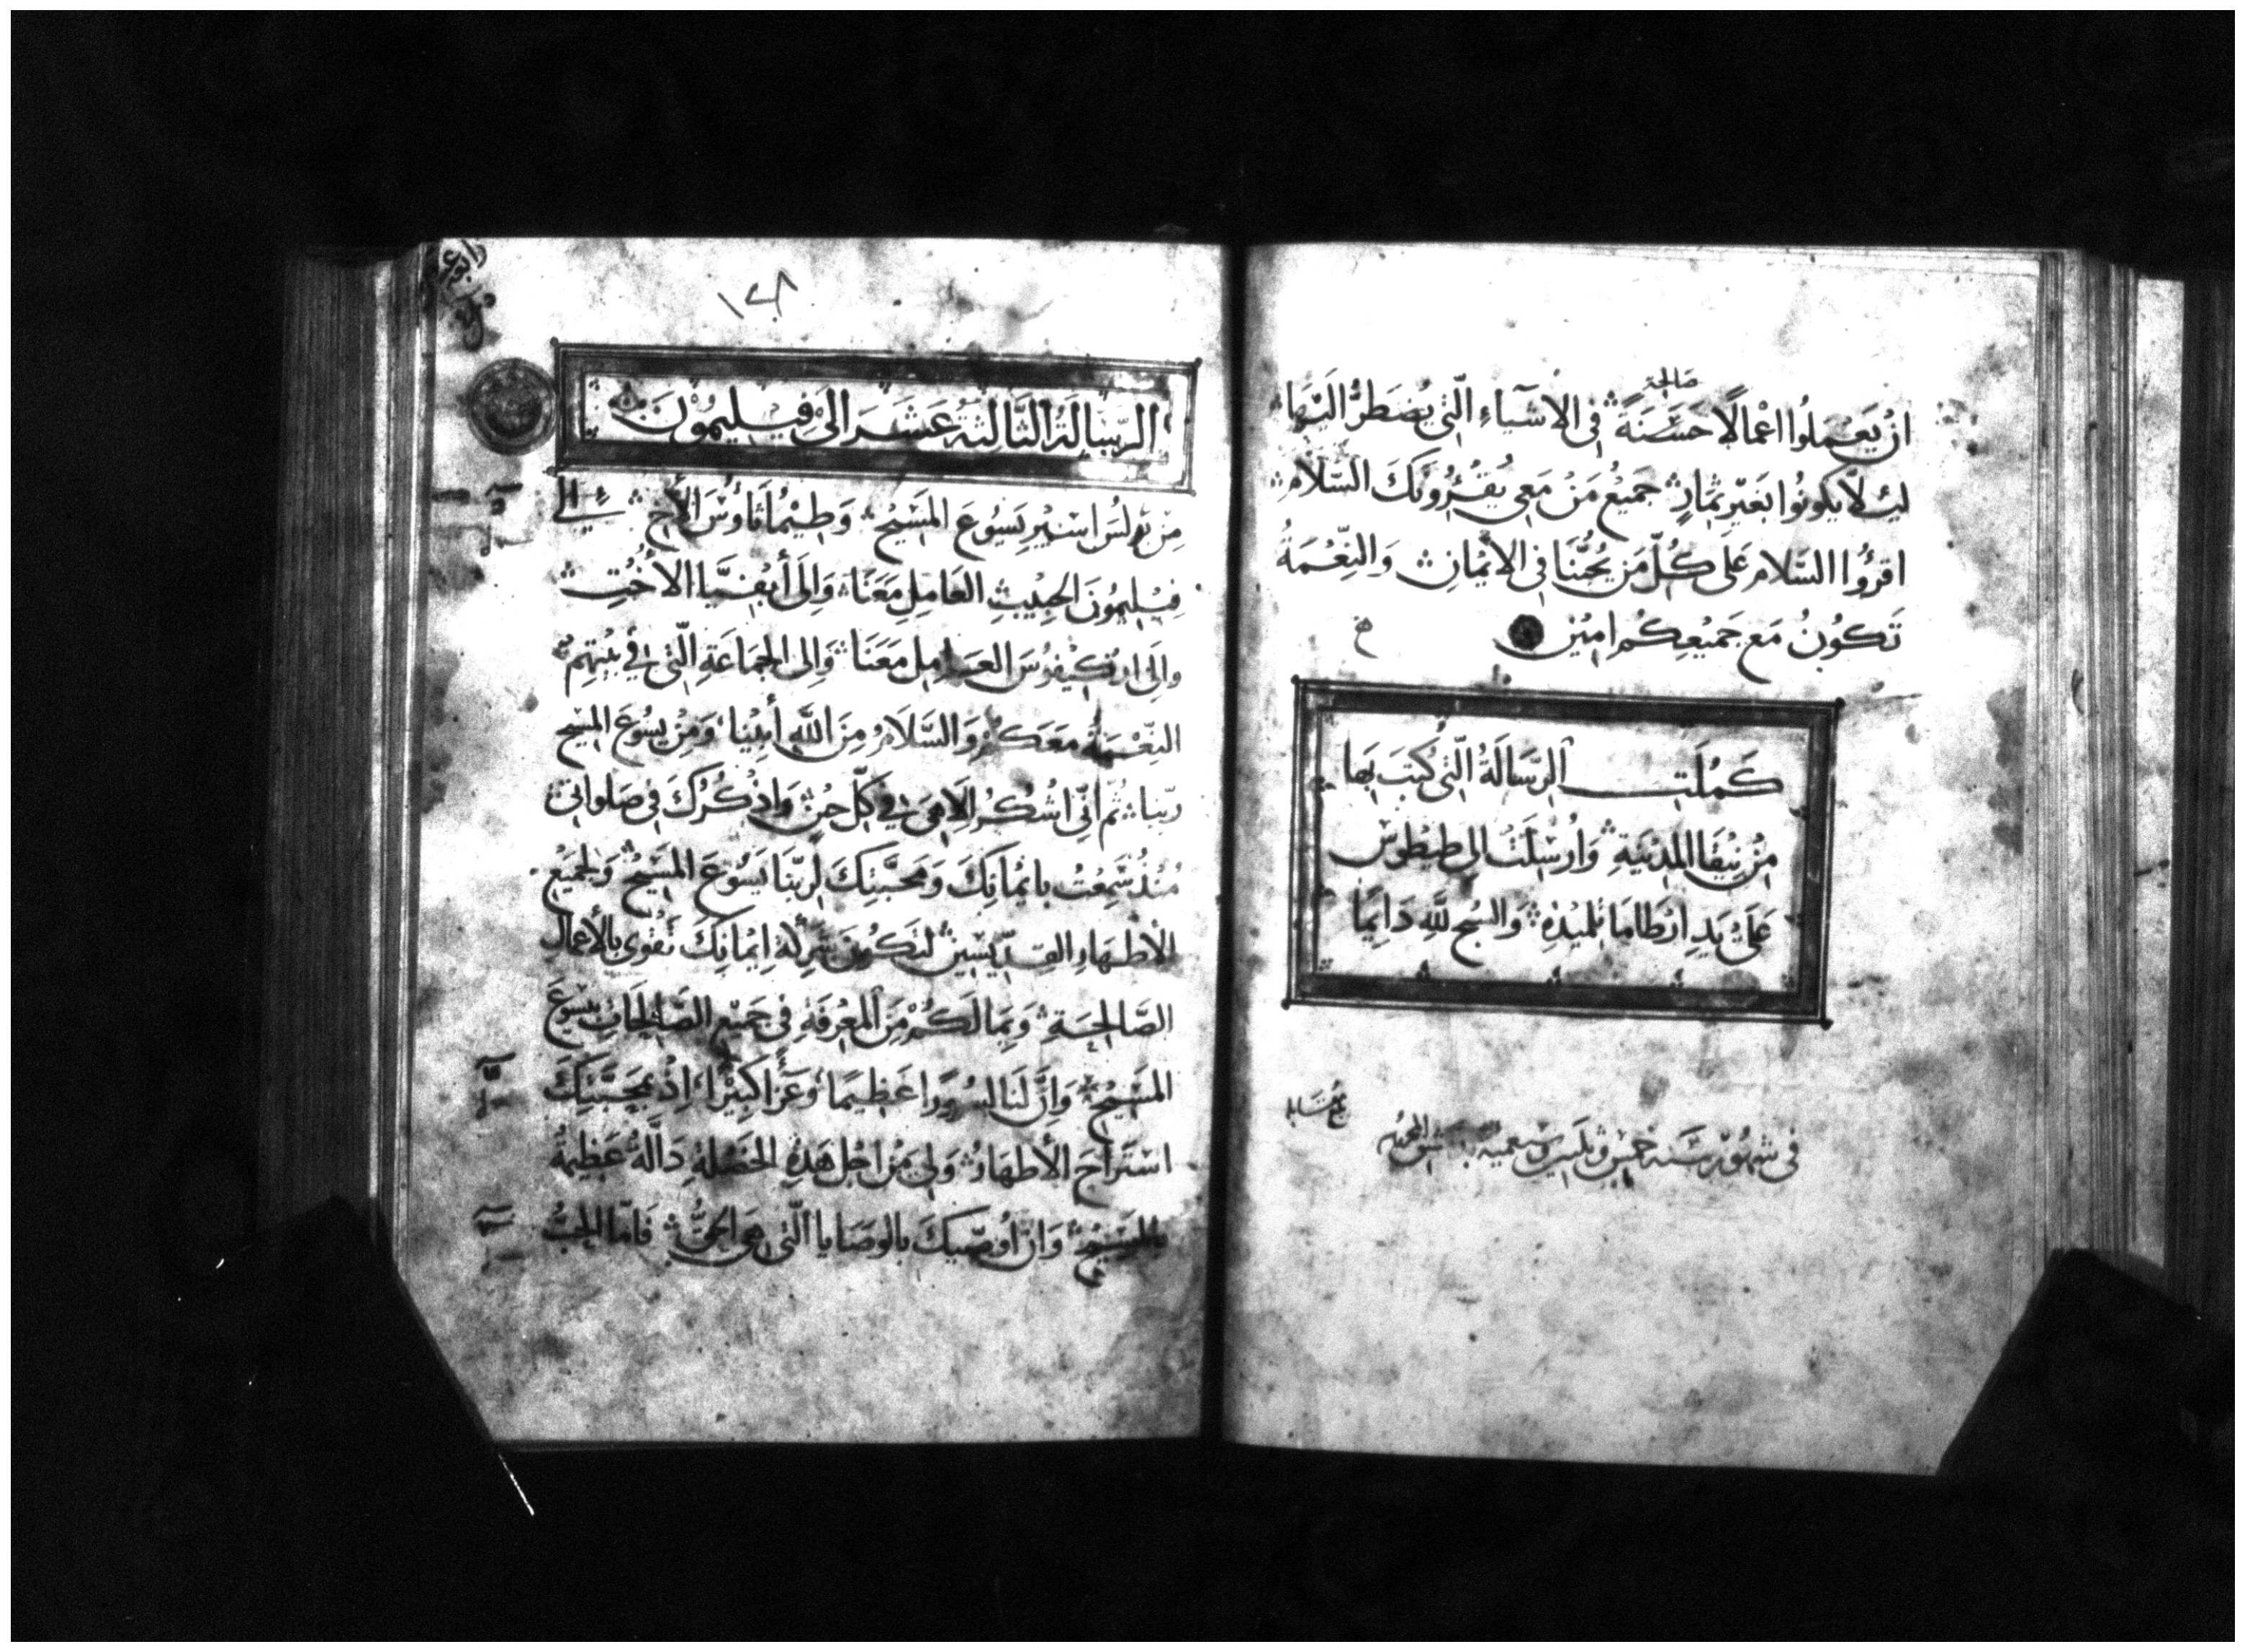 صالحة
ان يَعْمَلُوا اعْمَالًا حَسَنَةً في الاشيَاءِ الّتي يُضطَرُّ اليَهَا
ليلا يكونُوا بغَيْر ثمَارٍ جَميعُ مَنْ مَعي يُقْرُوونَكَ السّلام
اقرُوا السّلام عَلى كُلّ مَن يُحبُّنَا في الأيْمان وَالنّعْمَةُ
تَكوُنُ مَع جَميْعِكُم امِيْن
ح
كَمُلَتِ الرّسَالَةُ الّتي كُتِبَ بهَا
مِنْ نِيْقَا المدِيْنَةِ وَارْسِلَتْ الي طيطوس
عَلَى يَدِ ارْطَامَا تلميْذِهِ وَالسُبح للّهِ دَايمًا
في شهور سَنه خمس وثلثين وسبعميه
١٢٨
الرّسَالَةُ الثّالثةُ عَشَرَ الىَ فيْليمُوْنَ
مِن بَولُسَ اسَيْرِ يَسُوعَ المَسَيْح وَطيْمَاثَاوُسَ الأَخ الي
فيْليمُونَ الحَبِيْبِ العَامِلِ مَعَنَا وَالَى أبفيَّا الأخُتِ
والَى ارْكيْفُوسَ العَامِلِ مَعَنَا وَالى الجمَاعَةِ الّتي في بَيْتِهِم
النّعْمَةُ مَعَكمْ وَالسَّلَامُ مِنَ اللّهِ أبيْنَا وَمِنْ يسُوعَ المسَيْح
ربّنا ثمّ انّي اشُكُرُ الَاهِىَ في كلّ حِيْن وَاذْكرُكَ في صَلواتي
مُنْذُ سَمِعْتُ بايْمَانِكَ وَمَحبَّتِكَ لرَبّنَا يَسُوعَ المَسَيْح وَلجَميْعِ
الأطْهَارِ القدّيسيْن لتَكُونَ شَرِكةُ ايْمانِكَ تَقْوى بالأَعمال
الصَّالحَةِ وَبمَا لَكُمْ مِنَ المَعْرفَةِ في جَميْعِ الصَّالحَاتِ بيَسُوعَ
المَسَيْح وَانَّ لنَا لسُرُورًا عَظِيمًا وَعَزَا كبيْرًا اذْ بمحَبَّتِكَ
اسْتَرَاحَ الأطهَارُ وَلي مِنْ اجْل هَذِهِ الخَصْلةِ دَالَّةٌ عَظِيْمةٌ
بالمَسَيْح وَان أُوصِّيكَ بالوَصَايا الّتي هِىَ الحَقُّ فَامّا الحبُّ